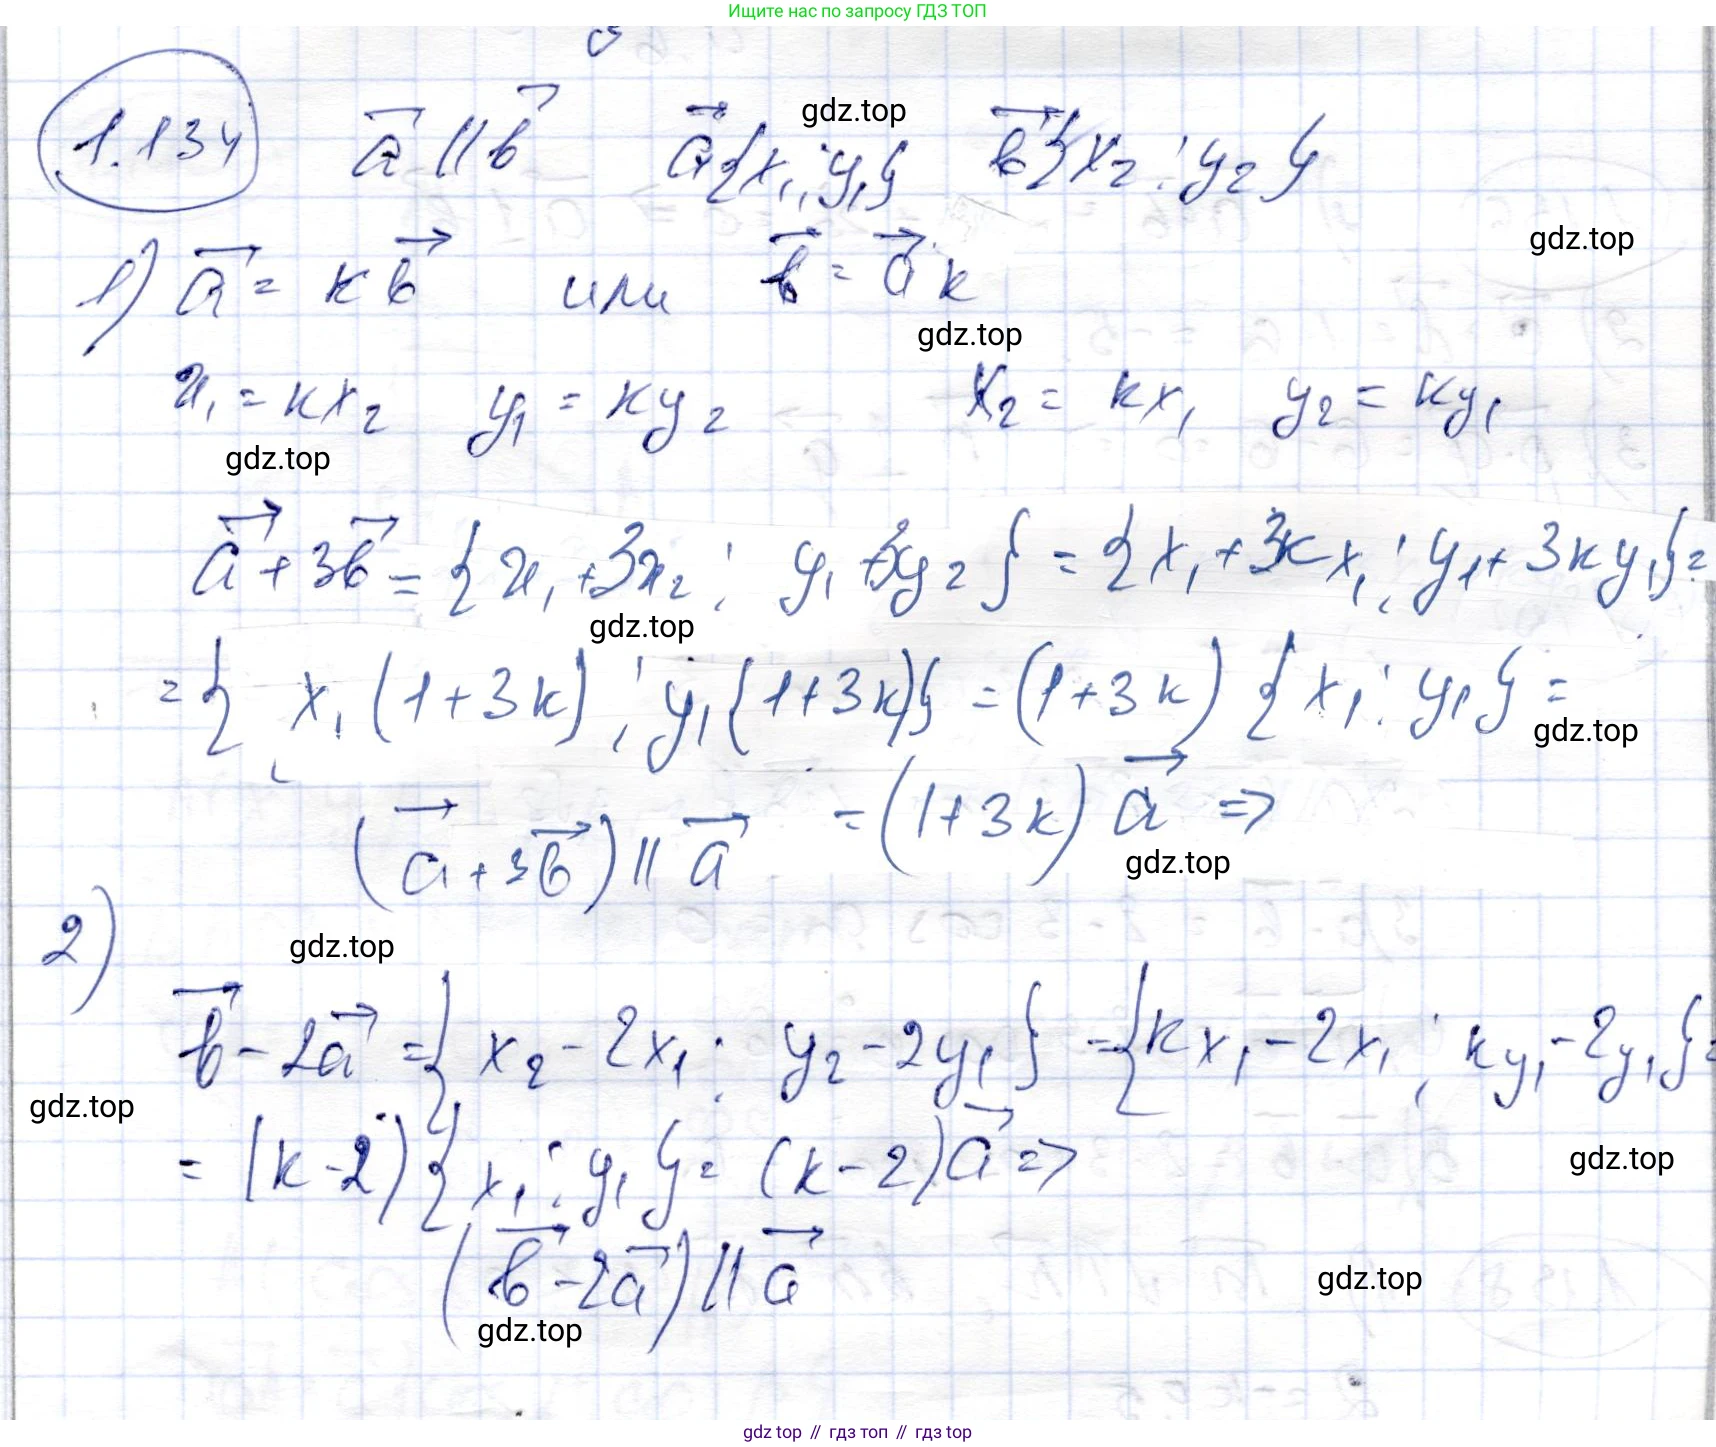 Ищите нас по запросу ГДЗ ТОП
1.134 a⃗ || b⃗ a⃗{x₁; y₁} gdz.top b⃗{x₂; y₂}
gdz.top
1) a⃗ = кb⃗ или b⃗ = a⃗к
gdz.top
x₁ = кx₂ y₁ = кy₂ x₂ = кx₁ y₂ = кy₁
gdz.top
a⃗ + 3b⃗ = {x₁ + 3x₂; y₁ + 3y₂} = {x₁ + 3кx₁; y₁ + 3кy₁} =
gdz.top
= {x₁(1+3к); y₁(1+3к)} = (1+3к) {x₁; y₁} =
gdz.top
= (1+3к) a⃗ =>
(a⃗ + 3b⃗) || a⃗
gdz.top
2)
gdz.top
b⃗ - 2a⃗ = {x₂ - 2x₁; y₂ - 2y₁} = {кx₁ - 2x₁; кy₁ - 2y₁} =
gdz.top
= (к-2) {x₁; y₁} = (к-2)a⃗ =>
gdz.top
(b⃗ - 2a⃗) || a⃗
gdz.top
gdz.top
gdz top // гдз топ // гдз top